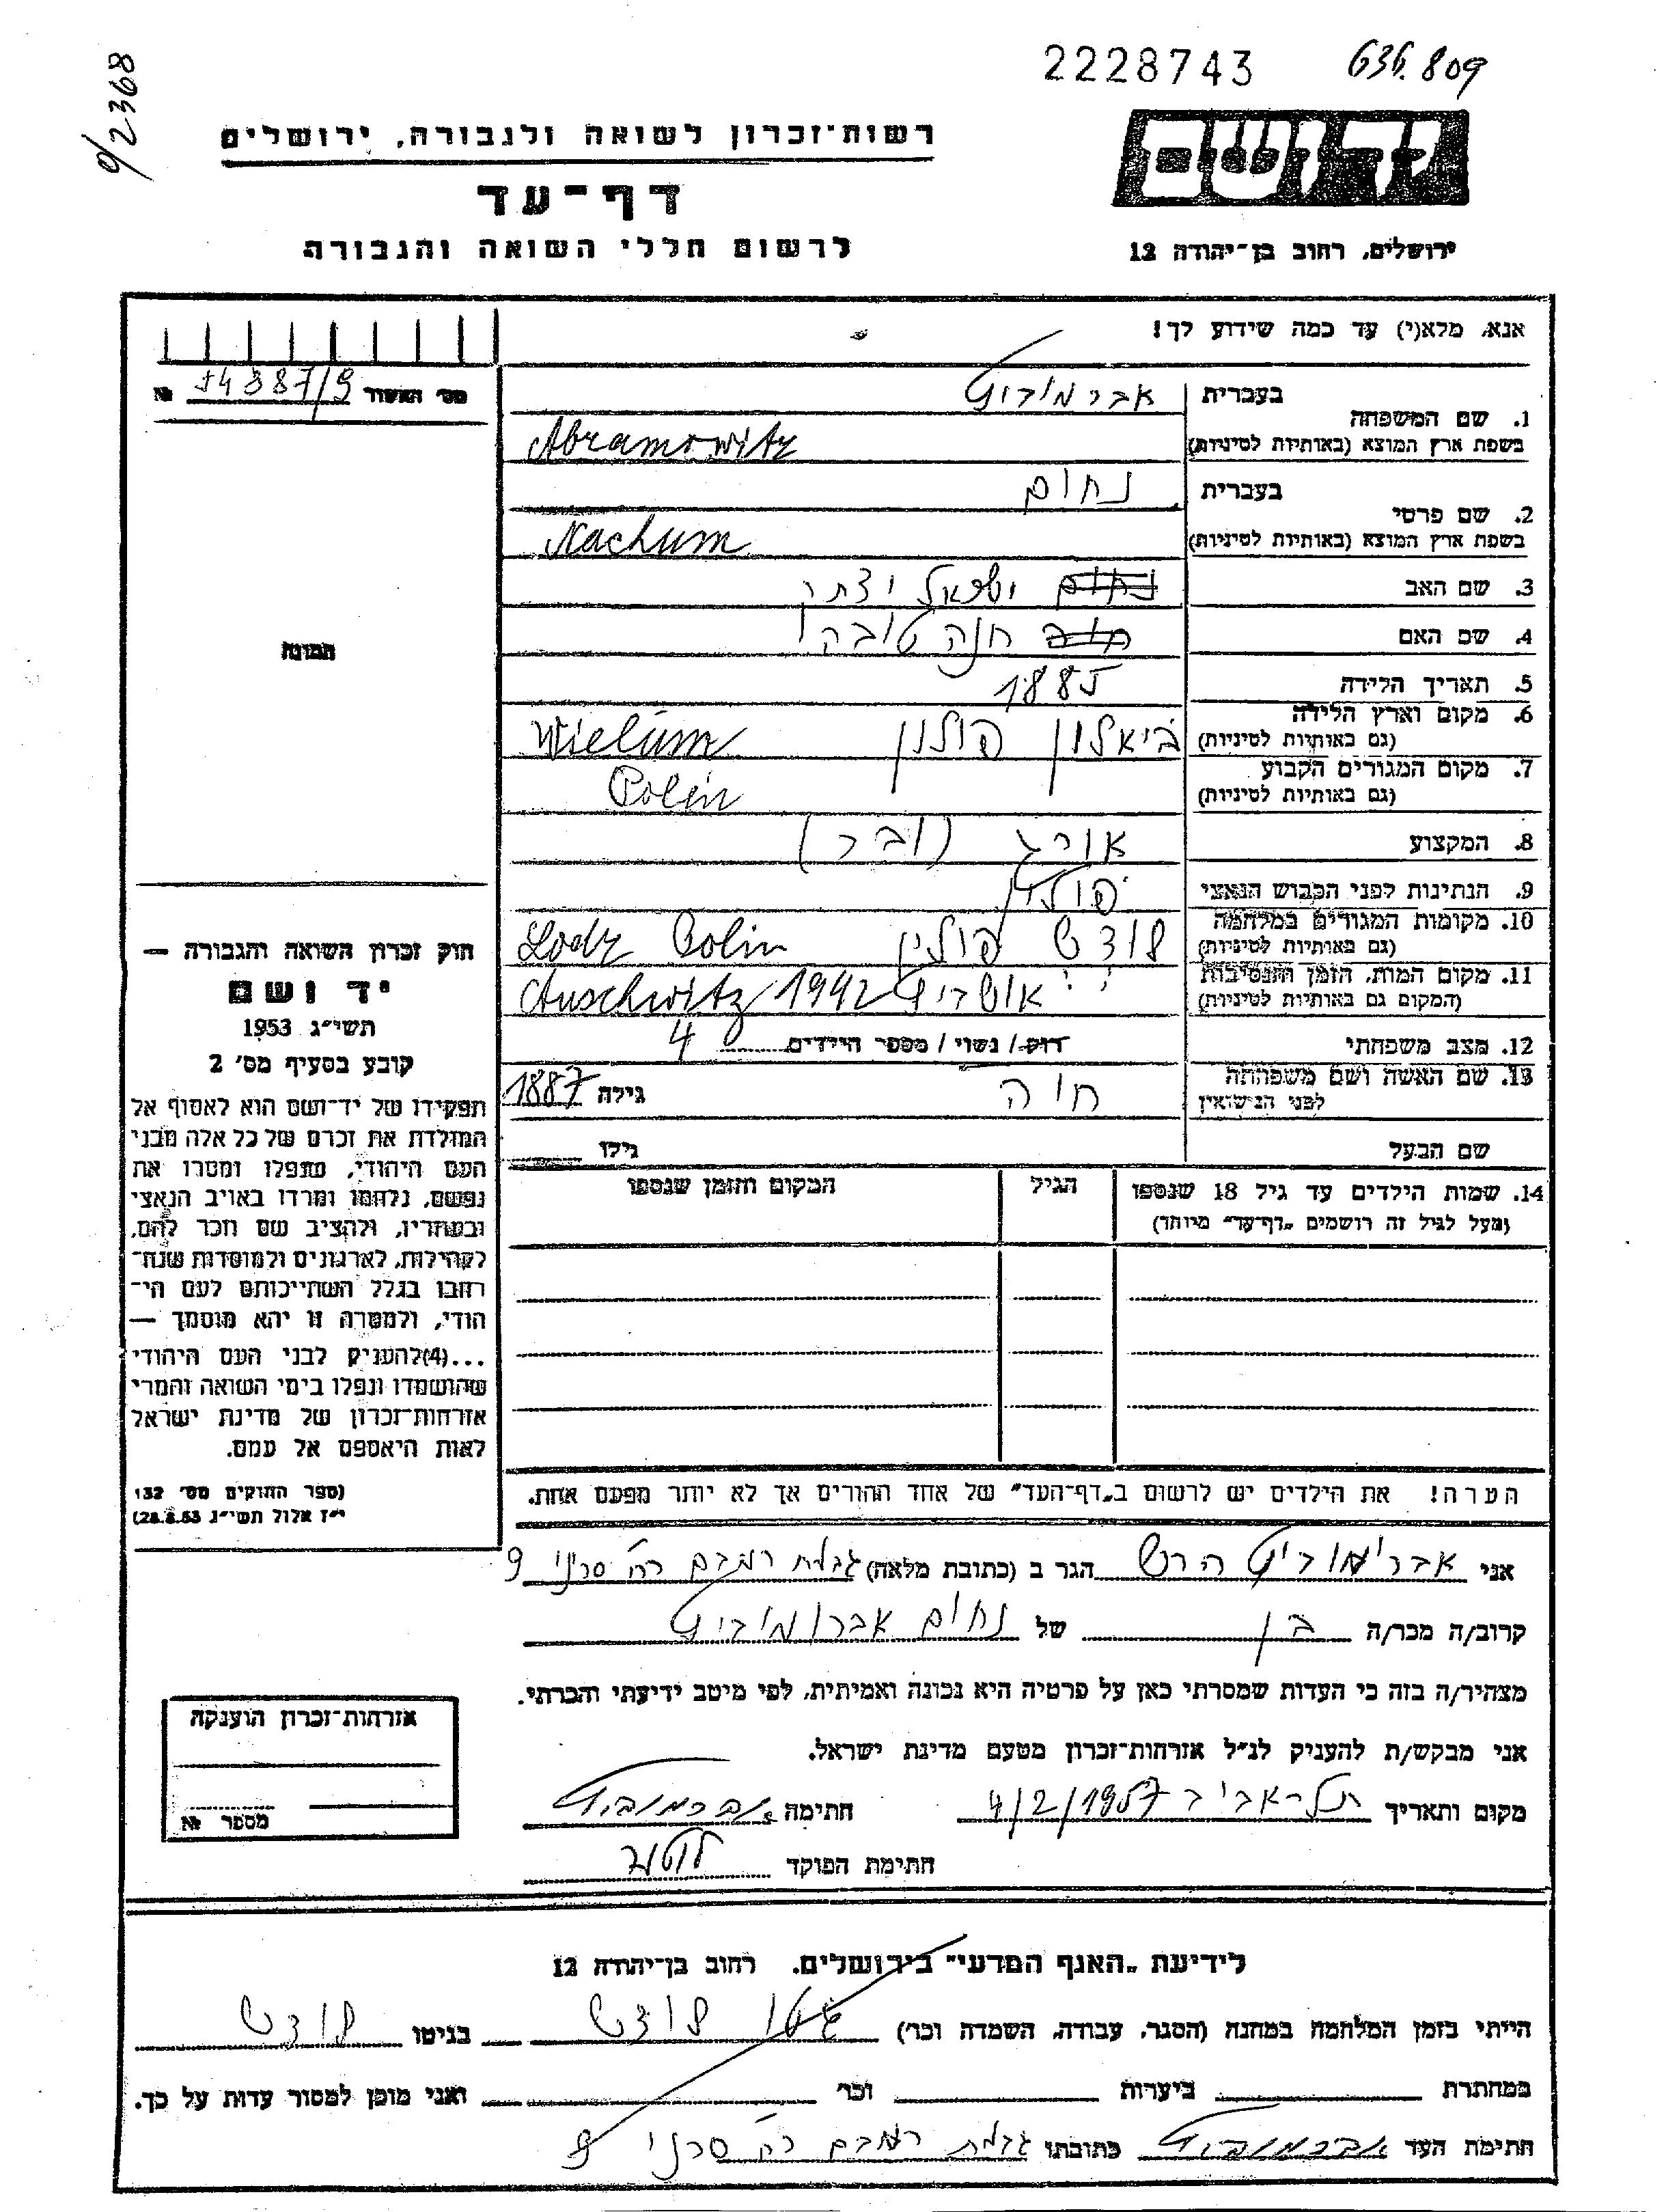 2228743 636.809
0/2368
יד ושם
רשות-זכרון לשואה ולגבורה, ירושלים
דף-עד
לרשום חללי השואה והגבורה
ירושלים, רחוב בן-יהודה 12
אנא, מלא(י) עד כמה שידוע לך!
מס' האשור 74387/9 №
1. שם המשפחה בעברית אברמוביץ
בשפת ארץ המוצא (באותיות לטיניות) Abramowitz
2. שם פרטי בעברית נחום
בשפת ארץ המוצא (באותיות לטיניות) Nachum
3. שם האב נחום ישראל יצחק
4. שם האם חוה חנה טובה
5. תאריך הלידה 1885
6. מקום וארץ הלידה
(גם באותיות לטיניות) ויאלון פולין Wielum
7. מקום המגורים הקבוע
(גם באותיות לטיניות) Polin
8. המקצוע אורג (ובר)
9. הנתינות לפני הכבוש הנאצי פולין
10. מקומות המגורים במלחמה
(גם באותיות לטיניות) לודש פולין Lodz Polin
11. מקום המות, הזמן והנסיבות
(המקום גם באותיות לטיניות) Auschwitz 1942
12. מצב משפחתי רוק / נשוי / מספר הילדים 4
13. שם האשה ושם משפחתה
לפני הנישואין חוה גילה 1887
שם הבעל גילו
14. שמות הילדים עד גיל 18 שנספו הגיל המקום והזמן שנספו
(מעל לגיל זה רושמים „דף-עד" מיוחד)
הערה! את הילדים יש לרשום ב„דף-העד" של אחד ההורים אך לא יותר מפעם אחת.
תמונה
חוק זכרון השואה והגבורה —
יד ושם
תשי"ג 1953
קובע בסעיף מס' 2
תפקידו של יד-ושם הוא לאסוף אל
המולדת את זכרם של כל אלה מבני
העם היהודי, שנפלו ומסרו את
נפשם, נלחמו ומרדו באויב הנאצי
ובעוזריו, ולהציב שם וזכר להם,
לקהילות, לארגונים ולמוסדות שנח־
רבו בגלל השתייכותם לעם הי־
הודי, ולמטרה זו יהא מוסמך —
...(4)להעניק לבני העם היהודי
שהושמדו ונפלו בימי השואה והמרי
אזרחות-זכרון של מדינת ישראל
לאות היאספם אל עמם.
(ספר החוקים מס' 132
י"ז אלול תשי"ג 28.8.53)
אני אברימוביץ הרש הגר ב (כתובת מלאה) גבעת רמבם רח' סרני 9
קרוב/ה מכר/ה בן של נחום אברומוביץ
מצהיר/ה בזה כי העדות שמסרתי כאן על פרטיה היא נכונה ואמיתית, לפי מיטב ידיעתי והכרתי.
אני מבקש/ת להעניק לנ"ל אזרחות-זכרון מטעם מדינת ישראל.
מקום ותאריך תל-אביב 4/2/1957 חתימה אברמוביץ
חתימת הפוקד
אזרחות-זכרון הוענקה
מספר №
לידיעת „האגף המדעי" בירושלים, רחוב בן-יהודה 12
הייתי בזמן המלחמה במחנה (הסגר, עבודה, השמדה וכו') גטו לודש בגיטו לודש
במחתרת ביערות וכו' ואני מוכן למסור עדות על כך.
חתימת העד אברמוביץ כתובתו גבעת רמבם רח' סרני 9